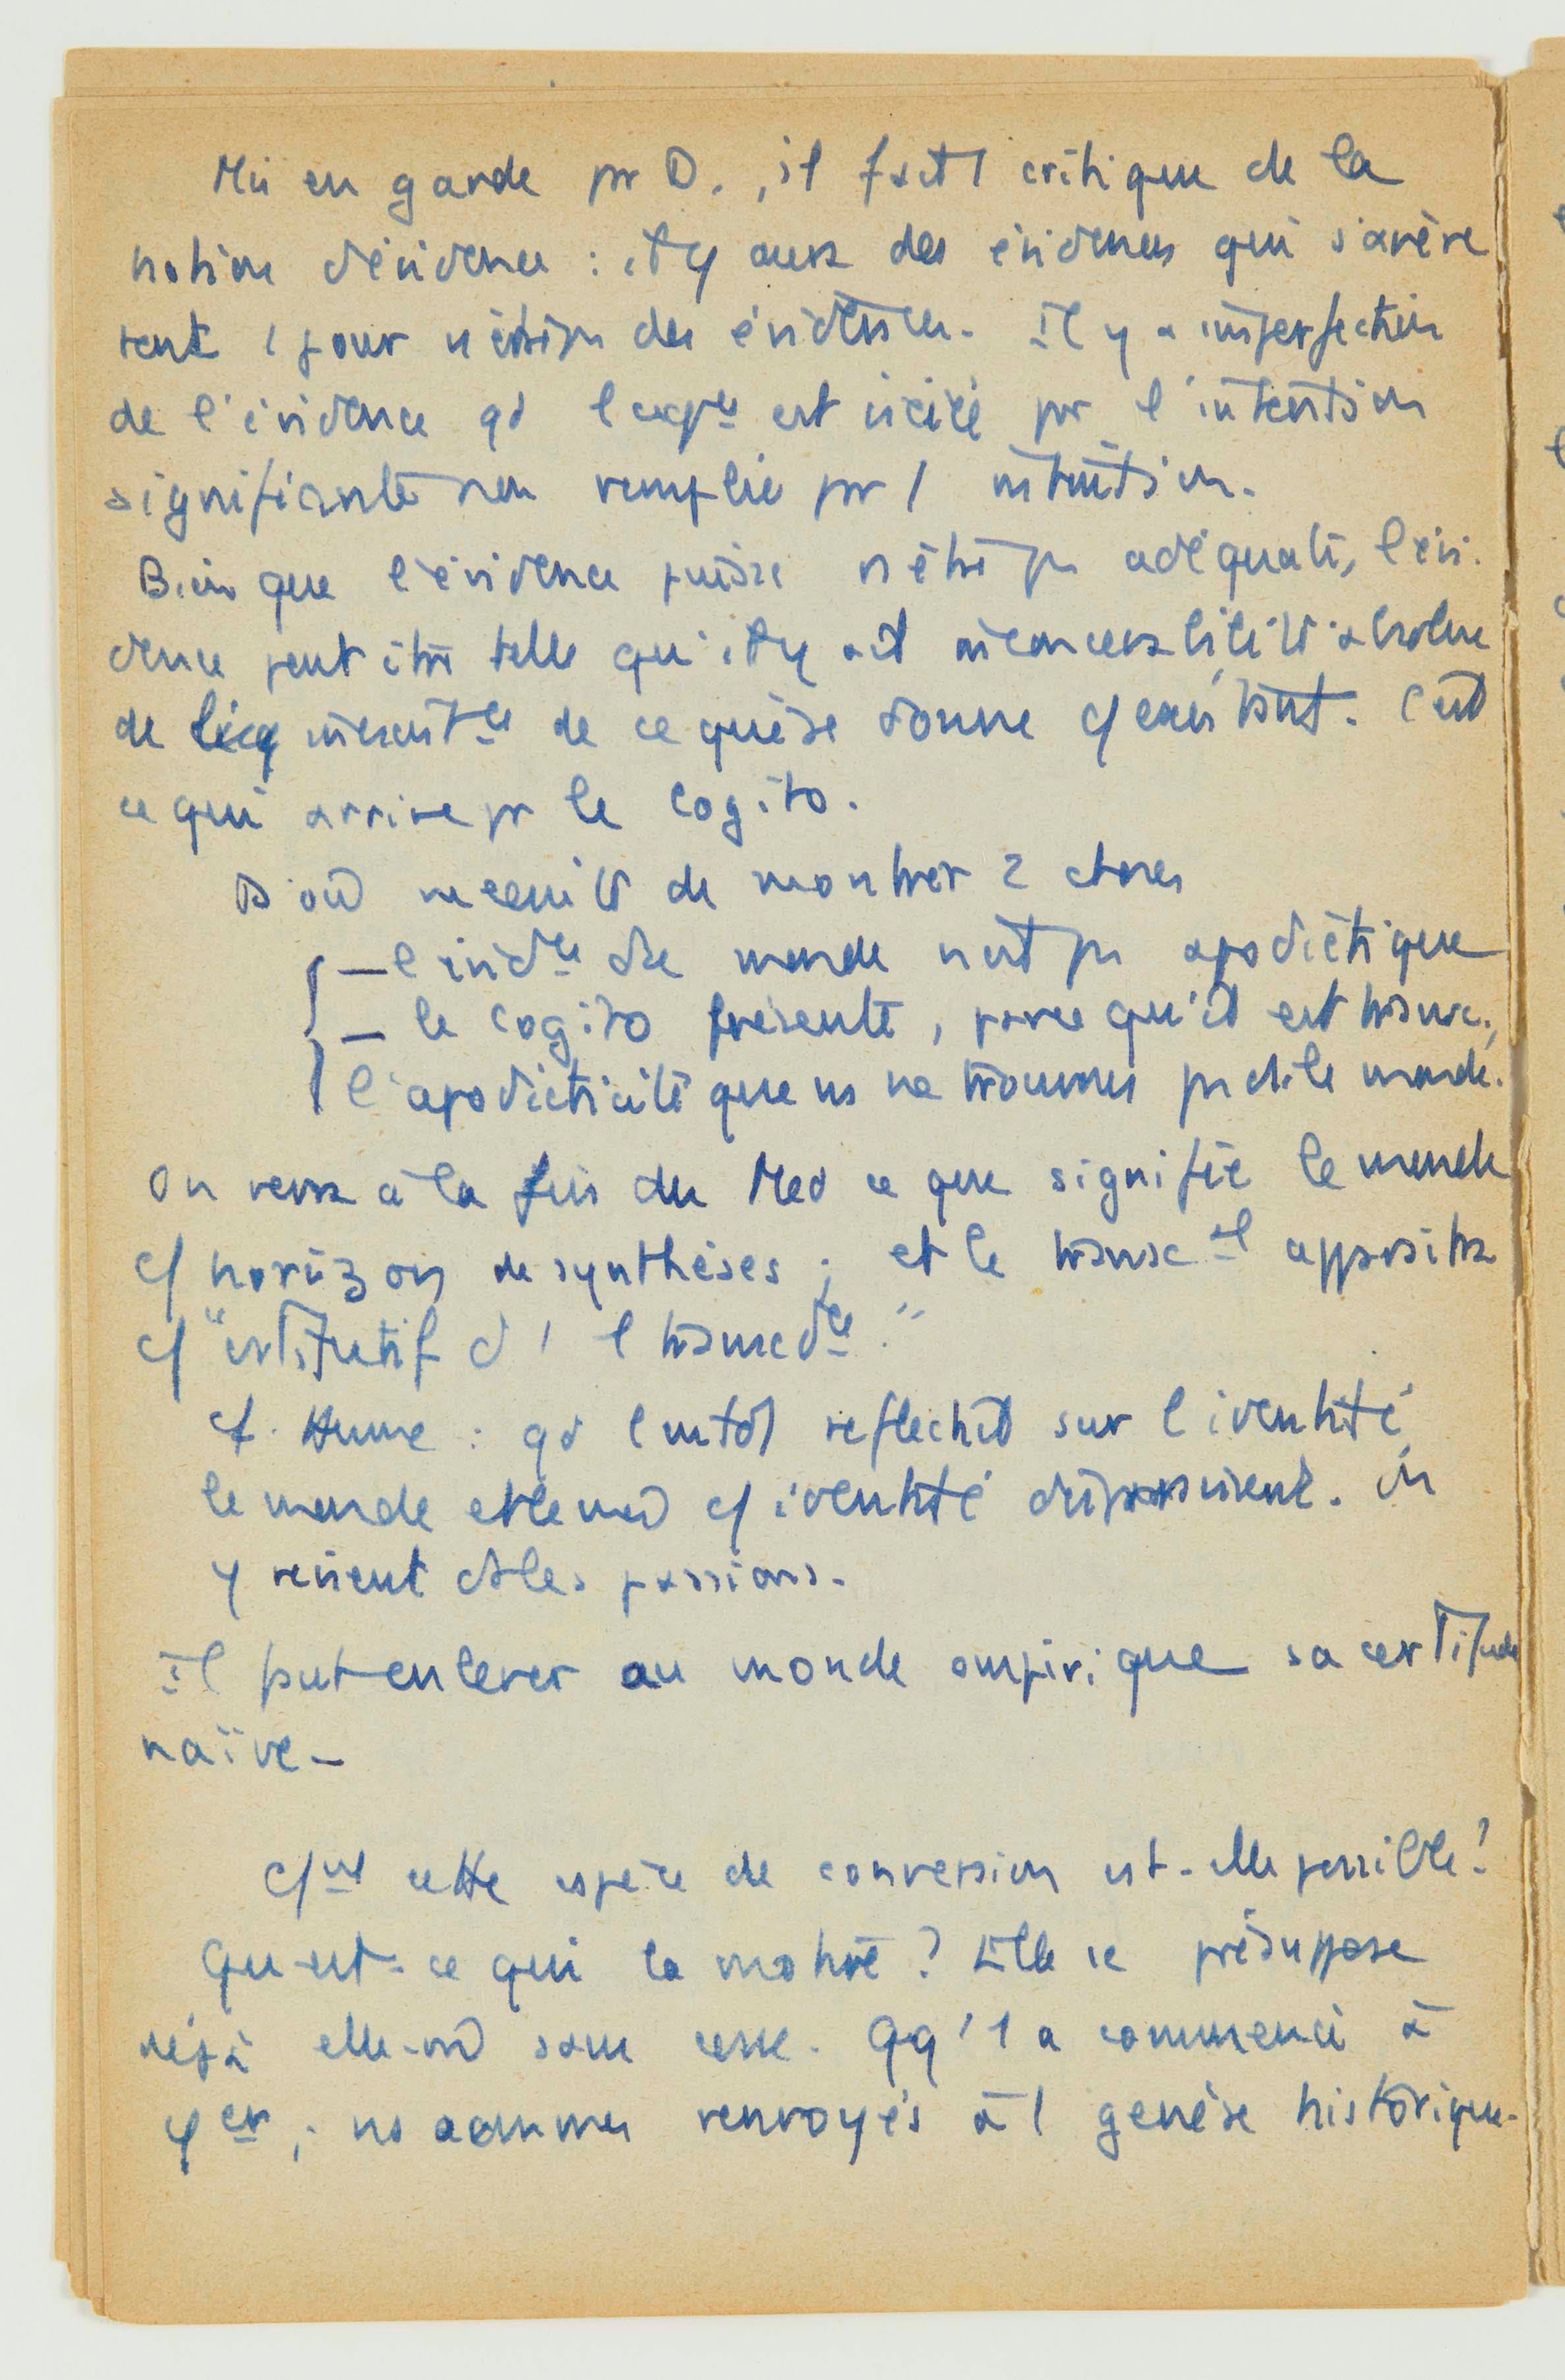 Mis en garde pr D., il fait 1 critique de la
notion d'évidence : il y aura des évidences qui s'avère
ront 1 jour n'être pas des évidences. Il y a imperfection
de l'évidence qd l'expce est viciée par l'intention
signifiante non remplie par 1 intuition.
Bien que l'évidence puisse n'être pas adéquate, l'évi-
dence peut être telle qu'il y ait inconcevabilité absolue
de l'inexistce de ce qui se donne c/ existant. C'est
ce qui arrive pr le cogito.
D'où nécessité de montrer 2 choses
– l'évidce du monde n'est pas apodictique
– le cogito présente, parce qu'il est transc.,
l'apodicticité que ns ne trouvons pas ds le monde.
On verra à la fin des Med ce que signifie le monde
c/ horizon de synthèses ; et le transcal apparaîtra
c/ "constitutif d' 1 transcdce."
cf. Hume : qd l'entdt réfléchit sur l'identité,
le monde et le moi c/ identité disparaissent. On
y revient ds les passions.
Il faut enlever au monde empirique sa certitude
naïve –
C/ent cette espèce de conversion est-elle possible ?
Qu'est-ce qui la motive ? Elle se présuppose
déjà elle-même sans cesse. Qq'1 a commencé à
φer ; ns sommes renvoyés à 1 genèse historique.